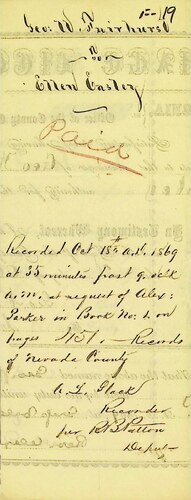 1-19
Geo: W. Fairhurst
To
Ellen Easley
Paid
Recorded Oct 18th A.D. 1869
at 35 minutes past 9 o'clk
A.M. at request of Alex:
Parker in Book No: 1. on
pages 451. Records
of Nevada County
Recorder
per R B Patton
Deputy